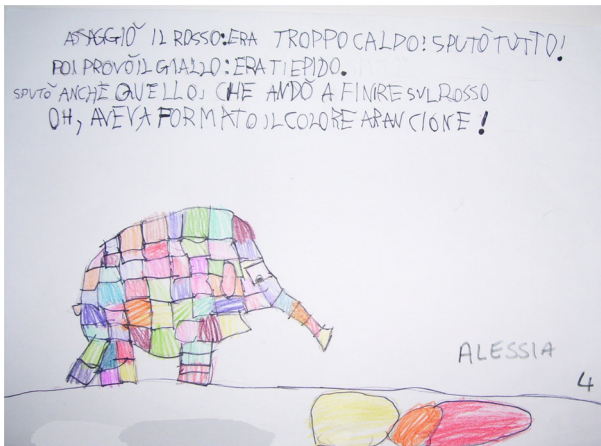 ASAGGIÒ IL ROSSO: ERA TROPPO CALDO! SPUTÒ TUTTO!
POI PROVÒ IL GIALLO: ERA TIEPIDO.
SPUTÒ ANCHE QUELLO, CHE ANDÒ A FINIRE SUL ROSSO
OH, AVEVA FORMATO IL COLORE ARANCIONE!
ALESSIA
4